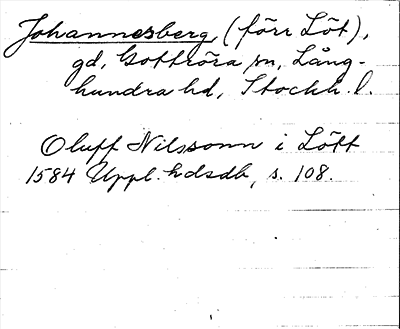 Johannesberg (förr Löt),
gd, Gottröra sn, Lång-
hundra hd, Stockh. l.
Oluff Nilssonn i Lött
1584 Uppl. hdsdb, s. 108.